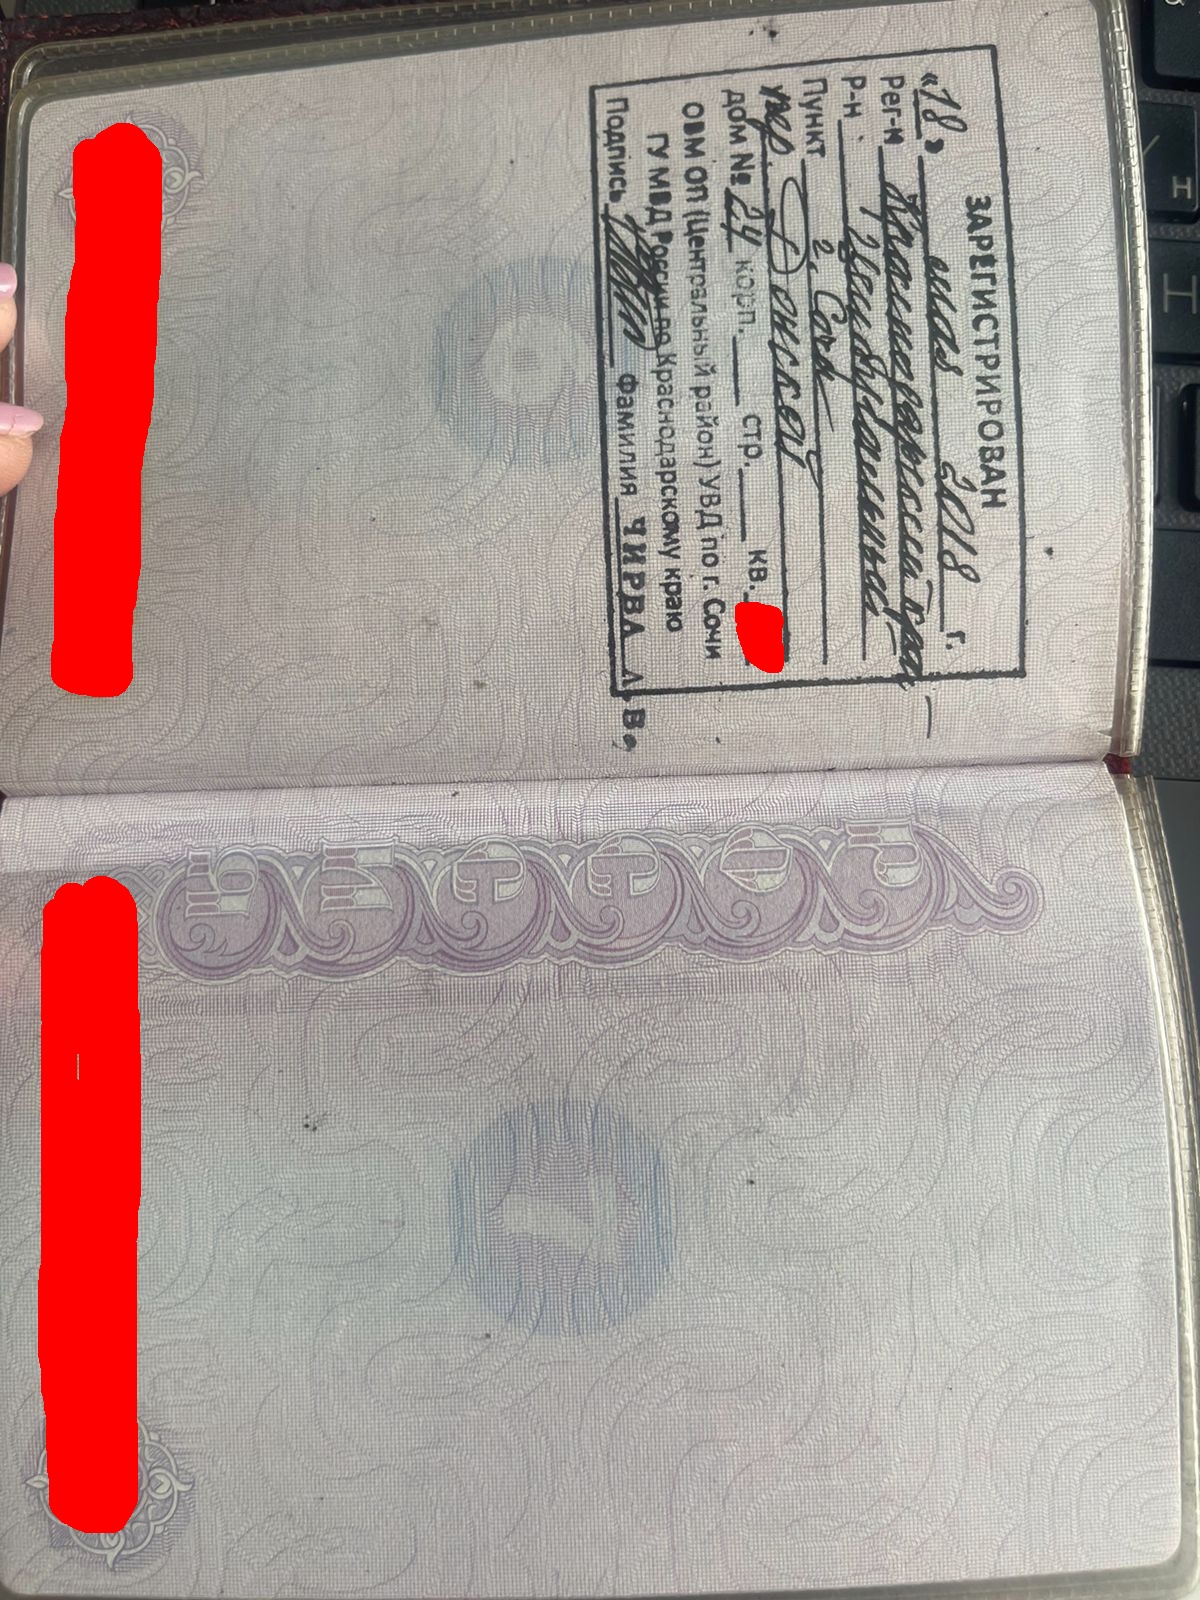 ЗАРЕГИСТРИРОВАН
«18» мая 2018 г.
Рег-н Краснодарский край
Р-н Центральный
Пункт г. Сочи
пер. Донской
дом № 24 корп. стр. кв.
ОВМ ОП (Центральный район) УВД по г. Сочи
ГУ МВД России по Краснодарскому краю
Подпись Фамилия ЧИРВА Л.В.